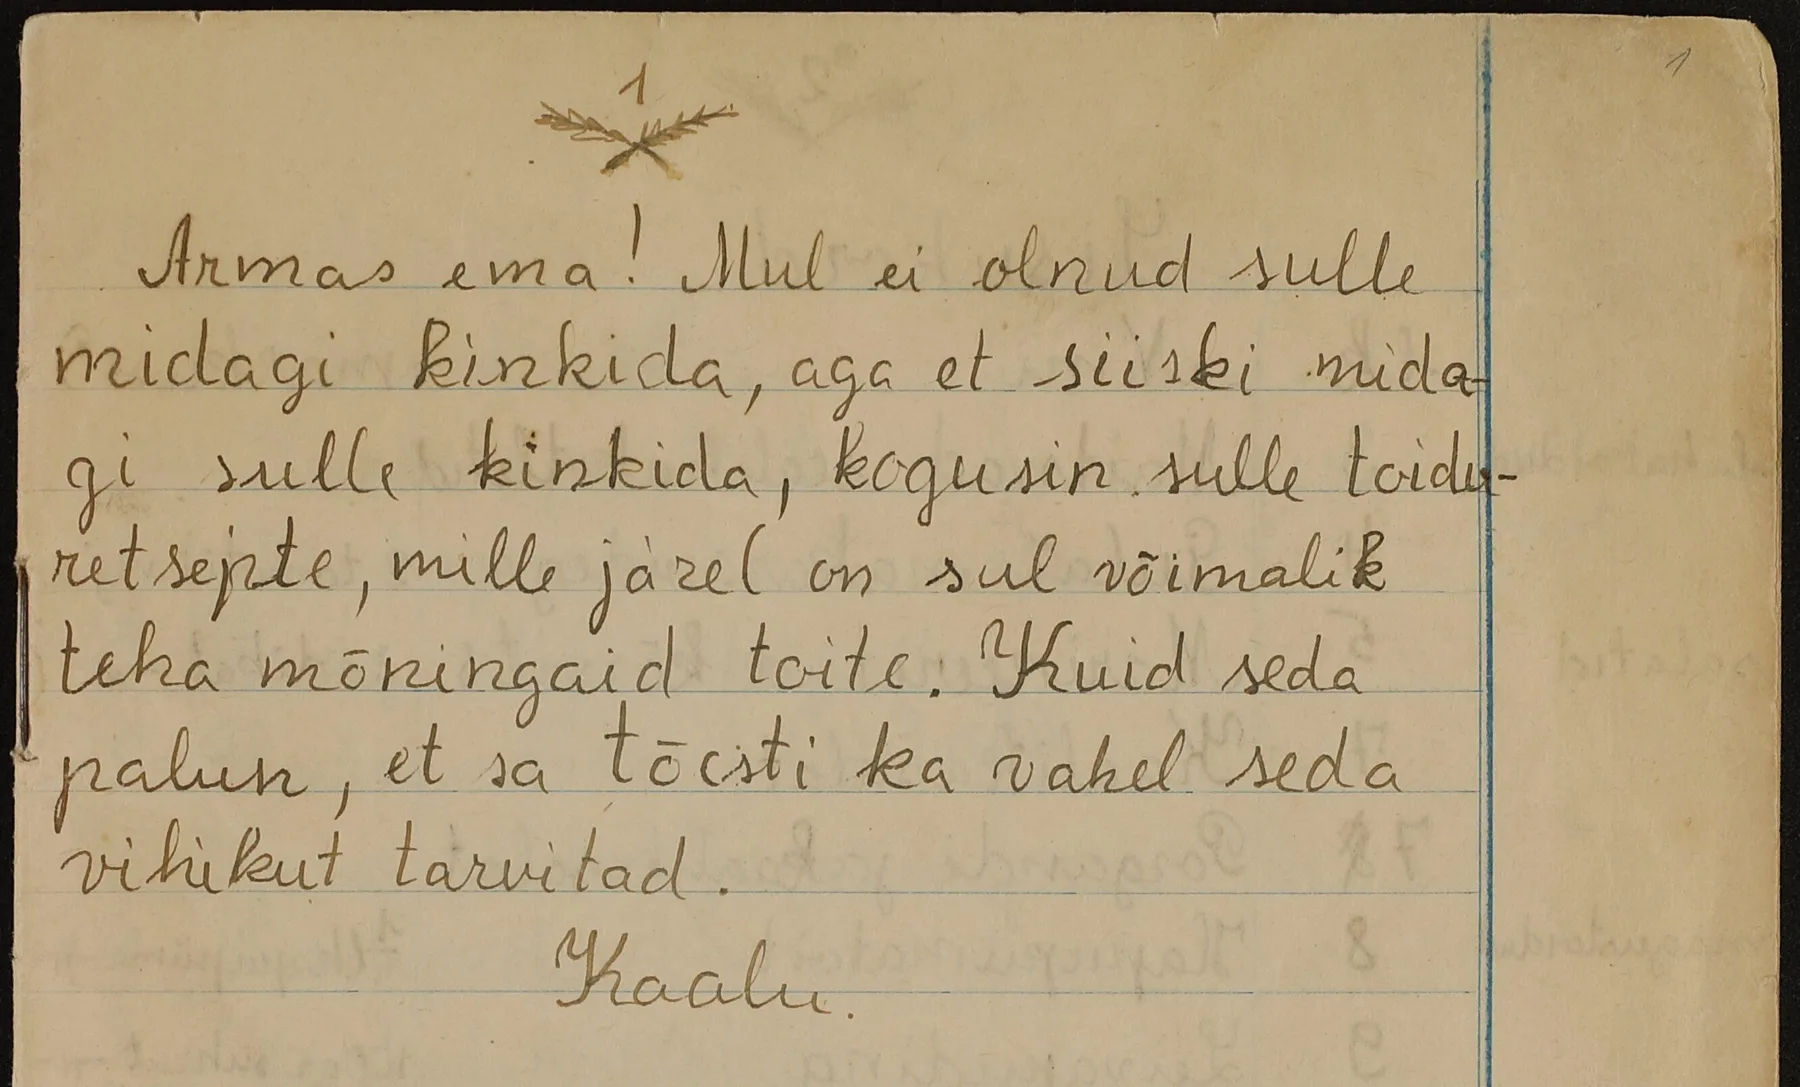 1
1
Armas ema! Mul ei olnud sulle
midagi kinkida, aga et siiski mida-
gi sulle kinkida, kogusin sulle toidu-
retsepte, mille järel on sul võimalik
teha mõningaid toite. Kuid seda
palun, et sa tõesti ka vahel seda
vihikut tarvitad.
Kaalu.